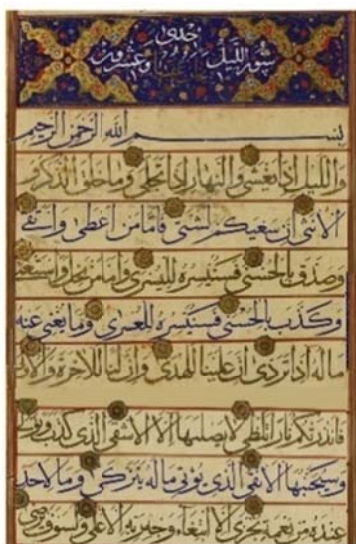 سورة الليل احدى وعشرون
بسم الله الرحمن الرحيم
والليل اذا يغشى والنهار اذا تجلى وما خلق الذكر و
الانثى ان سعيكم لشتى فاما من اعطى واتقى
وصدق بالحسنى فسنيسره لليسرى واما من بخل واستغنى
وكذب بالحسنى فسنيسره للعسرى وما يغنى عنه
ماله اذا تردى ان علينا للهدى وان لنا للاخرة والاولى
فانذرتكم نارا تلظى لا يصليها الا الاشقى الذى كذب وتولى
وسيجنبها الاتقى الذى يؤتى ماله يتزكى وما لاحد
عنده من نعمة تجزى الا ابتغاء وجه ربه الاعلى ولسوف يرضى